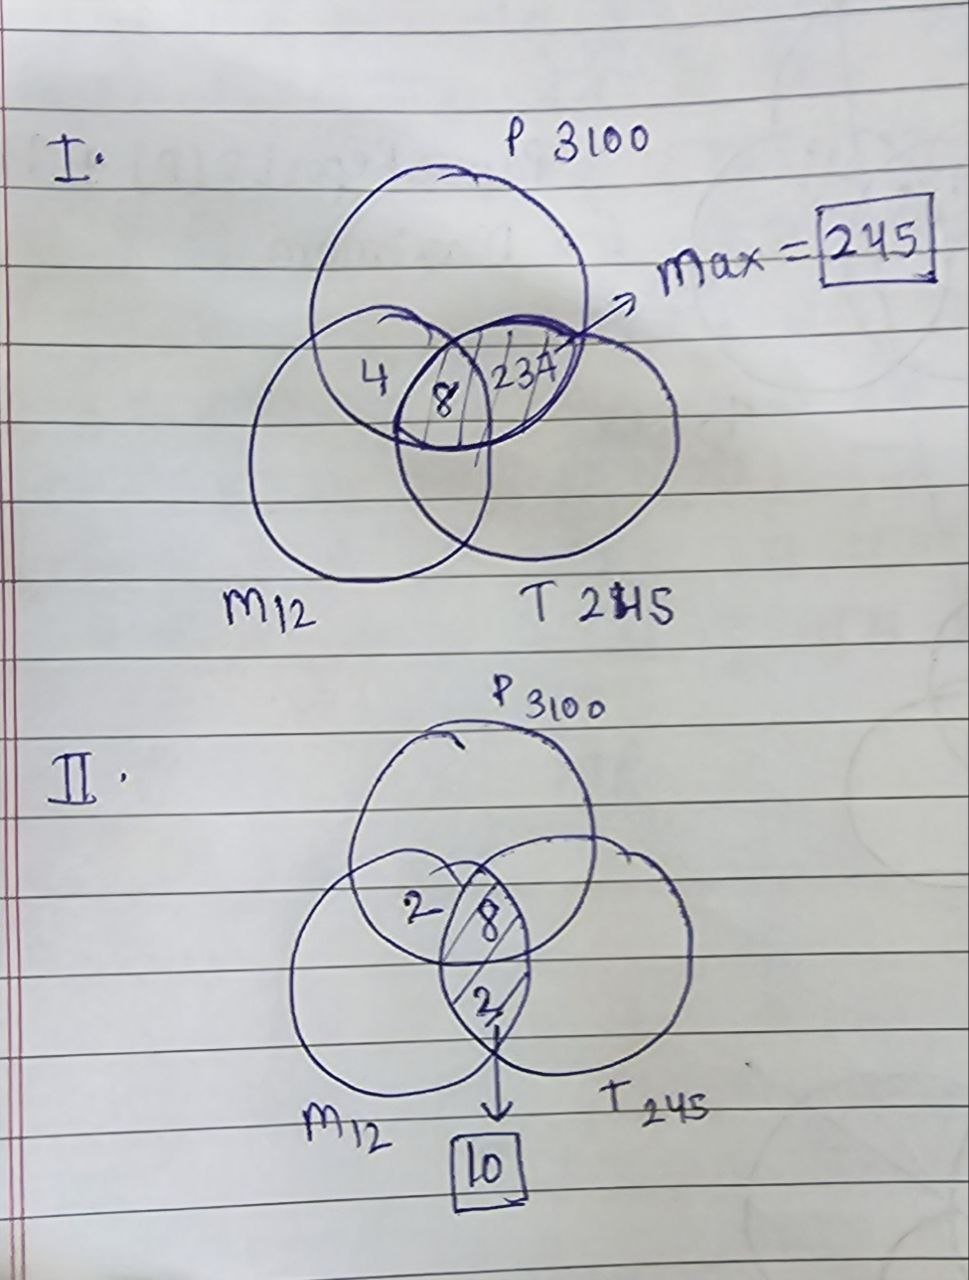 I.
P 3100
max = 245
4
8
234
M 12
T 245
P 3100
II.
2
8
2
M 12
T 245
10